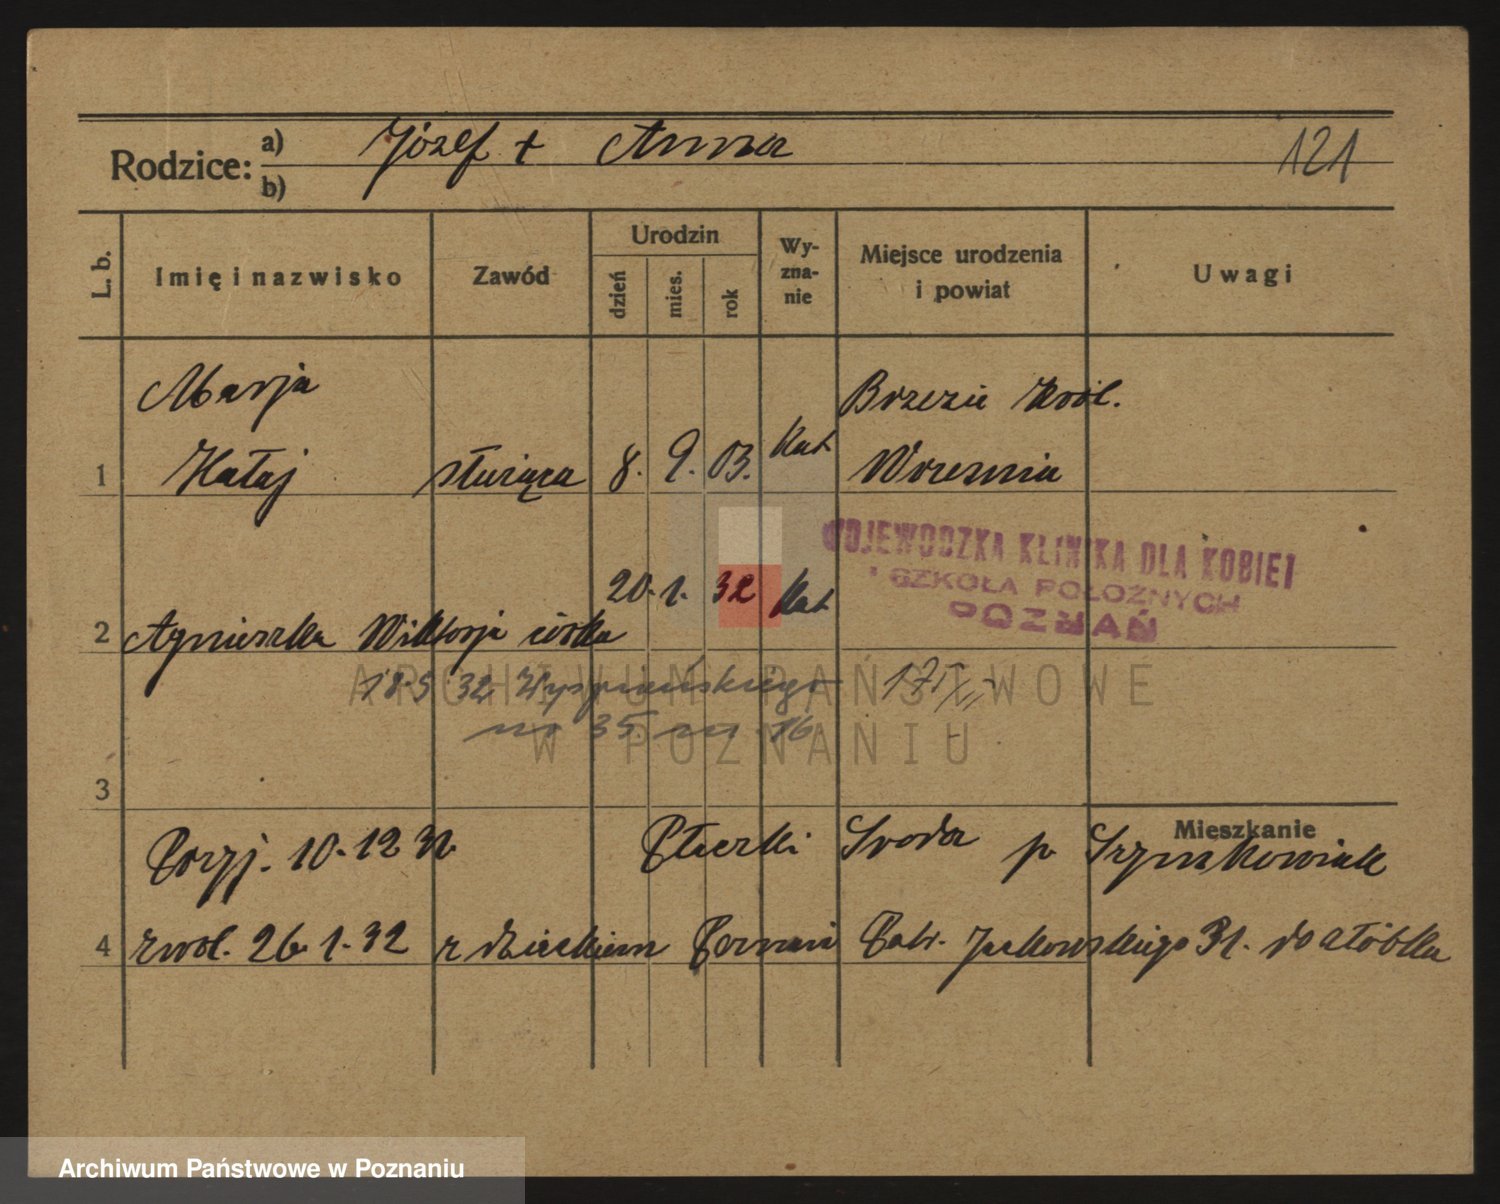 Rodzice: a) Józef + Anna
b)
121
L. b.
Imię i nazwisko
Zawód
Urodzin
dzień
mies.
rok
Wy-
zna-
nie
Miejsce urodzenia
i powiat
Uwagi
Marja
Brzezie
1 Kałaj służąca 8. 9. 03. Kat Września
WOJEWÓDZKA KLINIKA DLA KOBIET
I SZKOŁA POŁOŻNYCH
POZNAŃ
20. 1. 32 Kat
2 Agnieszka Wiktorja córka
18 5 32 Wyspiańskiego
nr 35 m 16
ARCHIWUM PAŃSTWOWE
W POZNANIU
3
Mieszkanie
Przyj. 10. 12 Środa p Szymkowiak
4 zwol. 26. 1. 32 z dzieckiem Poznań Patr. Jackowskiego 31. do żłóbka
Archiwum Państwowe w Poznaniu